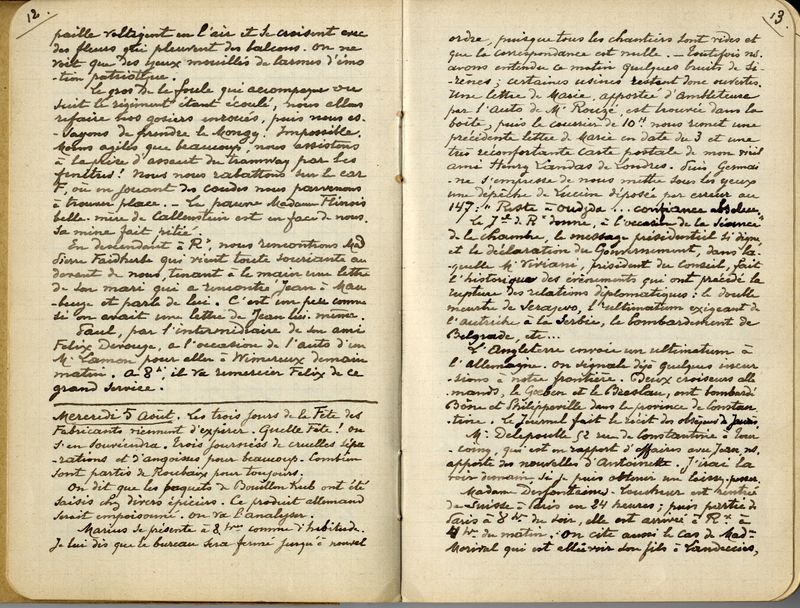 12.
paille voltigent en l'air et se croisent avec
des fleurs qui pleuvent des balcons. On ne
voit que des yeux mouillés de larmes d'émo
-tion patriotique.
Le gros de la foule qui accompagne ou
suit le régiment étant écoulé, nous allons
refaire nos gosiers enroués, puis nous es-
sayons de prendre le Mongy. Impossible.
Moins agiles que beaucoup, nous assistons
à la prise d'assaut du tramway par les
fenêtres! Nous nous rabattons sur le car
F, où en jouant des coudes nous parvenons
à trouver place. – La pauvre Madame Flinois
belle-mère de Callenstein est en face de nous.
Sa mine fait pitié.
En descendant à Rx, nous rencontrons Mad
Pierre Faidherbe qui vient toute souriante au
devant de nous, tenant à la main une lettre
de son mari qui a rencontré Jean à Mau
-beuge et parle de lui. C'est un peu comme
si on avait une lettre de Jean lui-même.
Paul, par l'intermédiaire de son ami
Felix Derouge, a l'occasion de l'auto d'un
Mr Lamon pour aller à Wimereux demain
matin. A 8h, il va remercier Felix de ce
grand service.
Mercredi 5 Août. Les trois jours de la Fête des
Fabricants viennent d'expirer. Quelle Fête! On
s'en souviendra. Trois journées de cruelles sépa
-rations et d'angoisses pour beaucoup. Combien
sont partis de Roubaix pour toujours.
On dit que les paquets de Bouillon Kub ont été
saisis chez divers épiciers. Ce produit allemand
serait empoisonné. On va l'analyser.
Marius se présente à 8 hres comme d'habitude.
Je lui dis que le bureau sera fermé jusqu'à nouvel
13.
ordre, puisque tous les chantiers sont vides et
que la correspondance est nulle. – Toutefois ns.
avons entendu ce matin quelques bruits de si-
rènes; certaines usines restent donc ouvertes.
Une lettre de Marie, apportée d'Ambleteuse
par l'auto de Mr Rouzé est trouvée dans la
boîte; puis le courrier de 10h nous remet une
précédente lettre de Marie en date du 3 et une
très réconfortante carte postale de mon vieil
ami Henry Landas de Londres. Puis Germai-
-ne s'empresse de nous mettre sous les yeux
une dépêche de Lucien déposée par erreur au
147: "Reste à Oudjda ... confiance absolue"
Le Jal de Rx donne, à l'occasion de la séance
de la chambre, le message présidentiel si digne,
et la déclaration du Gouvernement, dans la-
quelle Mr Viviani, président du Conseil, fait
l'historique des événements qui ont précédé la
rupture des relations diplomatiques: le double
meurtre de Serajevo, l'ultimatum exigeant de
l'autriche à la Serbie, le bombardement de
Belgrade, etc...
L'Angleterre envoie un ultimatum à
l'allemagne. On signale déjà quelques incur
-sions à notre frontière. Deux croiseurs alle
-mands, le Gœben et le Breslau, ont bombardé
Bône et Philippeville dans la province de Constan
-tine. Le Journal fait le récit des obsèques de Jaurès.
Mr Delepoulle 52 rue de Constantine à Tour
-coing, qui est en rapport d'affaires avec Jean, ns.
apporte des nouvelles d'Antoinette. J'irai la
voir demain si je puis obtenir un laissez-passer.
Madame Desfontaines-Loucheur est rentrée
de Suisse à Paris en 24 heures; puis partie de
Paris à 8 hres du soir, elle est arrivée à Rx à
4 hres du matin. On cite aussi le cas de Mad-
Morival qui est allée voir son fils à Landrecies,